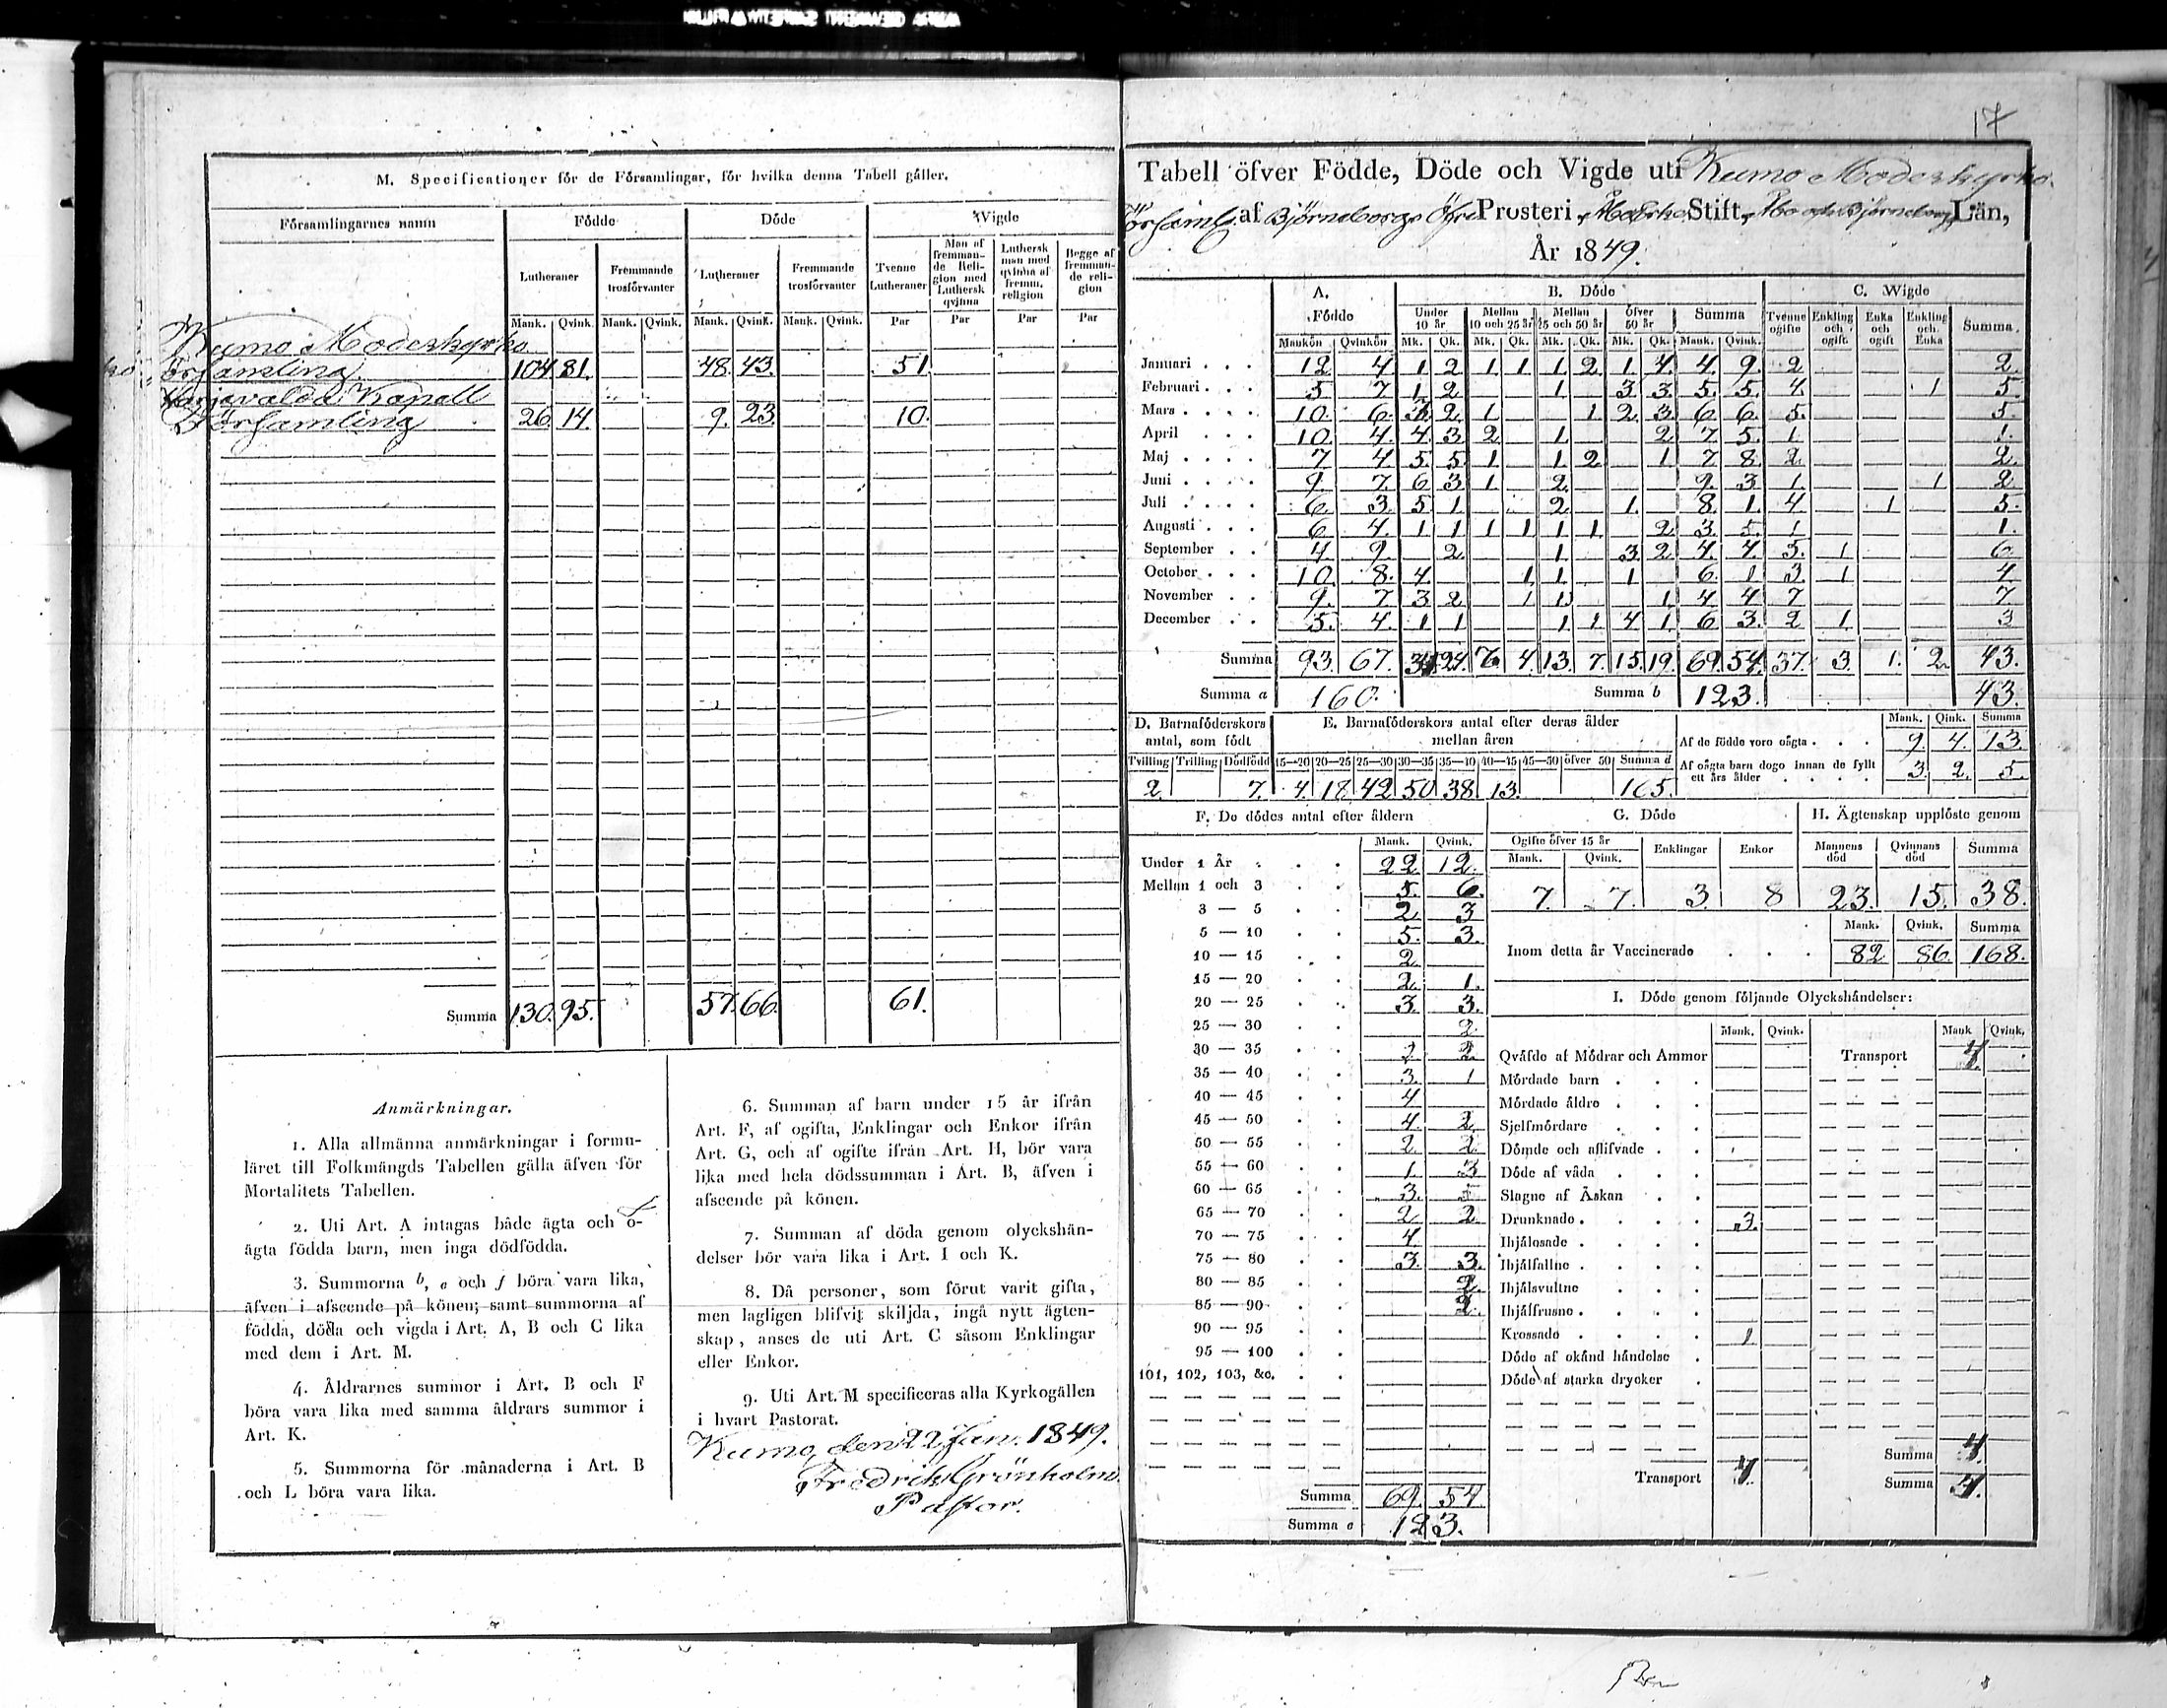 M. Specificationer för de Församlingar, för hvilka denna Tabell gäller.
Församlingarnes namn Födde Döde Vigde
Lutheraner Fremmande trosförvanter Lutheraner Fremmande trosförvanter Tvenne Lutheraner Man af fremmande Religion med Luthersk qvinna Luthersk man med qvinna af fremm. religion Begge af fremmande religion
Mank. Qvink. Mank. Qvink. Mank. Qvink. Mank. Qvink. Par Par Par Par
Kumo Moderkyrko
församling 104 81. 48. 43. 51.
Kapell
Församling 26. 14. 9. 23. 10.
Summa 130. 95. 57. 66. 61.
Anmärkningar.
1. Alla allmänna anmärkningar i formu-
läret till Folkmängds Tabellen gälla äfven för
Mortalitets Tabellen.
2. Uti Art. A intagas både ägta och o-
ägta födda barn, men inga dödfödda.
3. Summorna b, e och f böra vara lika,
äfven i afseende på könen; samt summorna af
födda, döda och vigda i Art. A, B och C lika
med dem i Art. M.
4. Åldrarnes summor i Art. B och F
böra vara lika med samma åldrars summor i
Art. K.
5. Summorna för månaderna i Art. B
och L böra vara lika.
6. Summan af barn under 15 år ifrån
Art. F, af ogifta, Enklingar och Enkor ifrån
Art. G, och af ogifte ifrån Art. H, bör vara
lika med hela dödssumman i Art. B, äfven i
afseende på könen.
7. Summan af döda genom olyckshän-
delser bör vara lika i Art. I och K.
8. Då personer, som förut varit gifta,
men lagligen blifvit skiljda, ingå nytt ägten-
skap, anses de uti Art. C såsom Enklingar
eller Enkor.
9. Uti Art. M specificeras alla Kyrkogällen
i hvart Pastorat.
Kumo, den 22 Jan. 1849.
Fredrik Grönholm
Pastor.
17
Tabell öfver Födde, Döde och Vigde uti Kumo Moderkyrko-
församl. af Björneborgs Öfre Prosteri, Åbo Erke Stift, Åbo och Björneborgs Län,
År 1849.
A. Födde B. Döde C. Wigde
Under 10 år Mellan 10 och 25 år Mellan 25 och 50 år öfver 50 år Summa Tvenne ogifte Enkling och ogift. Enka och ogift Enkling och Enka Summa.
Mankön Qvinkön Mk. Qk. Mk. Qk. Mk. Qk. Mk. Qk. Mank. Qvink.
Januari 12 4 1 2 1 1 1 2 1 4 4 9 2 2.
Februari 5 7 1 2 1 3 3 5 5 4 1 5.
Mars 10 6 2 1 1 2 3 6 6 5 5.
April 10 4 4 3 2 1 2 7 5 1 1.
Maj 7 4 5 5 1 1 2 1 7 8 2 2.
Juni 9 7 6 3 1 2 9 3 1 1 2
Juli 6 3 5 1 2 1 8 1 4 1 5.
Augusti 6 4 1 1 1 1 1 1 2 3 5 1 1.
September 4 9 2 1 3 2 4 4 5 1 6
October 10 8 4 1 1 1 6 1 3 1 4
November 9 7 3 2 1 1 1 4 4 7 7
December 5 4 1 1 1 1 4 1 6 3 2 1 3
Summa 93. 67. 24. 7. 4. 13. 7. 15. 19. 69. 54. 37. 3. 1. 2. 43.
Summa a 160. Summa b 123. 43.
D. Barnaföderskors antal, som födt
Tvilling Trilling Dödfödd
2. 7.
E. Barnaföderskors antal efter deras ålder mellan åren
15—20 20—25 25—30 30—35 35—40 40—45 45—50 öfver 50 Summa d
4. 18 42 50 38 13. 165.
Mank. Qink. Summa
Af de födde voro oägta 9. 4. 13.
Af oägta barn dogo innan de fyllt ett års ålder 3. 2. 5.
F. De dödes antal efter åldern
Mank. Qvink.
Under 1 År 22 12.
Mellan 1 och 3 5. 6.
3 — 5 2 3
5 — 10 5. 3.
10 — 15 2
15 — 20 2. 1.
20 — 25 3. 3.
25 — 30 2.
30 — 35 2 2
35 — 40 3. 1
40 — 45 4
45 — 50 4 2
50 — 55 2 2
55 — 60 1 3
60 — 65 3. 5
65 — 70 2 2
70 — 75 4
75 — 80 3. 3.
80 — 85 2.
85 — 90 2.
90 — 95
95 — 100
101, 102, 103, &c.
Summa 69. 54
Summa e 123.
G. Döde
Ogifte öfver 15 år Enklingar Enkor
Mank. Qvink.
7. 7. 3. 8
H. Ägtenskap upplöste genom
Mannens död Qvinnans död Summa
23. 15. 38.
Mank. Qvink. Summa
Inom detta år Vaccinerade 82 86 168.
I. Döde genom följande Olyckshändelser:
Mank. Qvink. Mank Qvink.
Qväfde af Mödrar och Ammor Transport 4.
Mördade barn
Mördade äldre
Sjelfmördare
Dömde och aflifvade
Döde af våda
Slagne af Åskan
Drunknade 3.
Ihjälosade
Ihjälfallne
Ihjälsvultne
Ihjälfrusne
Krossade 1
Döde af okänd händelse
Döde af starka drycker
Summa 4.
Transport 4. Summa 4.